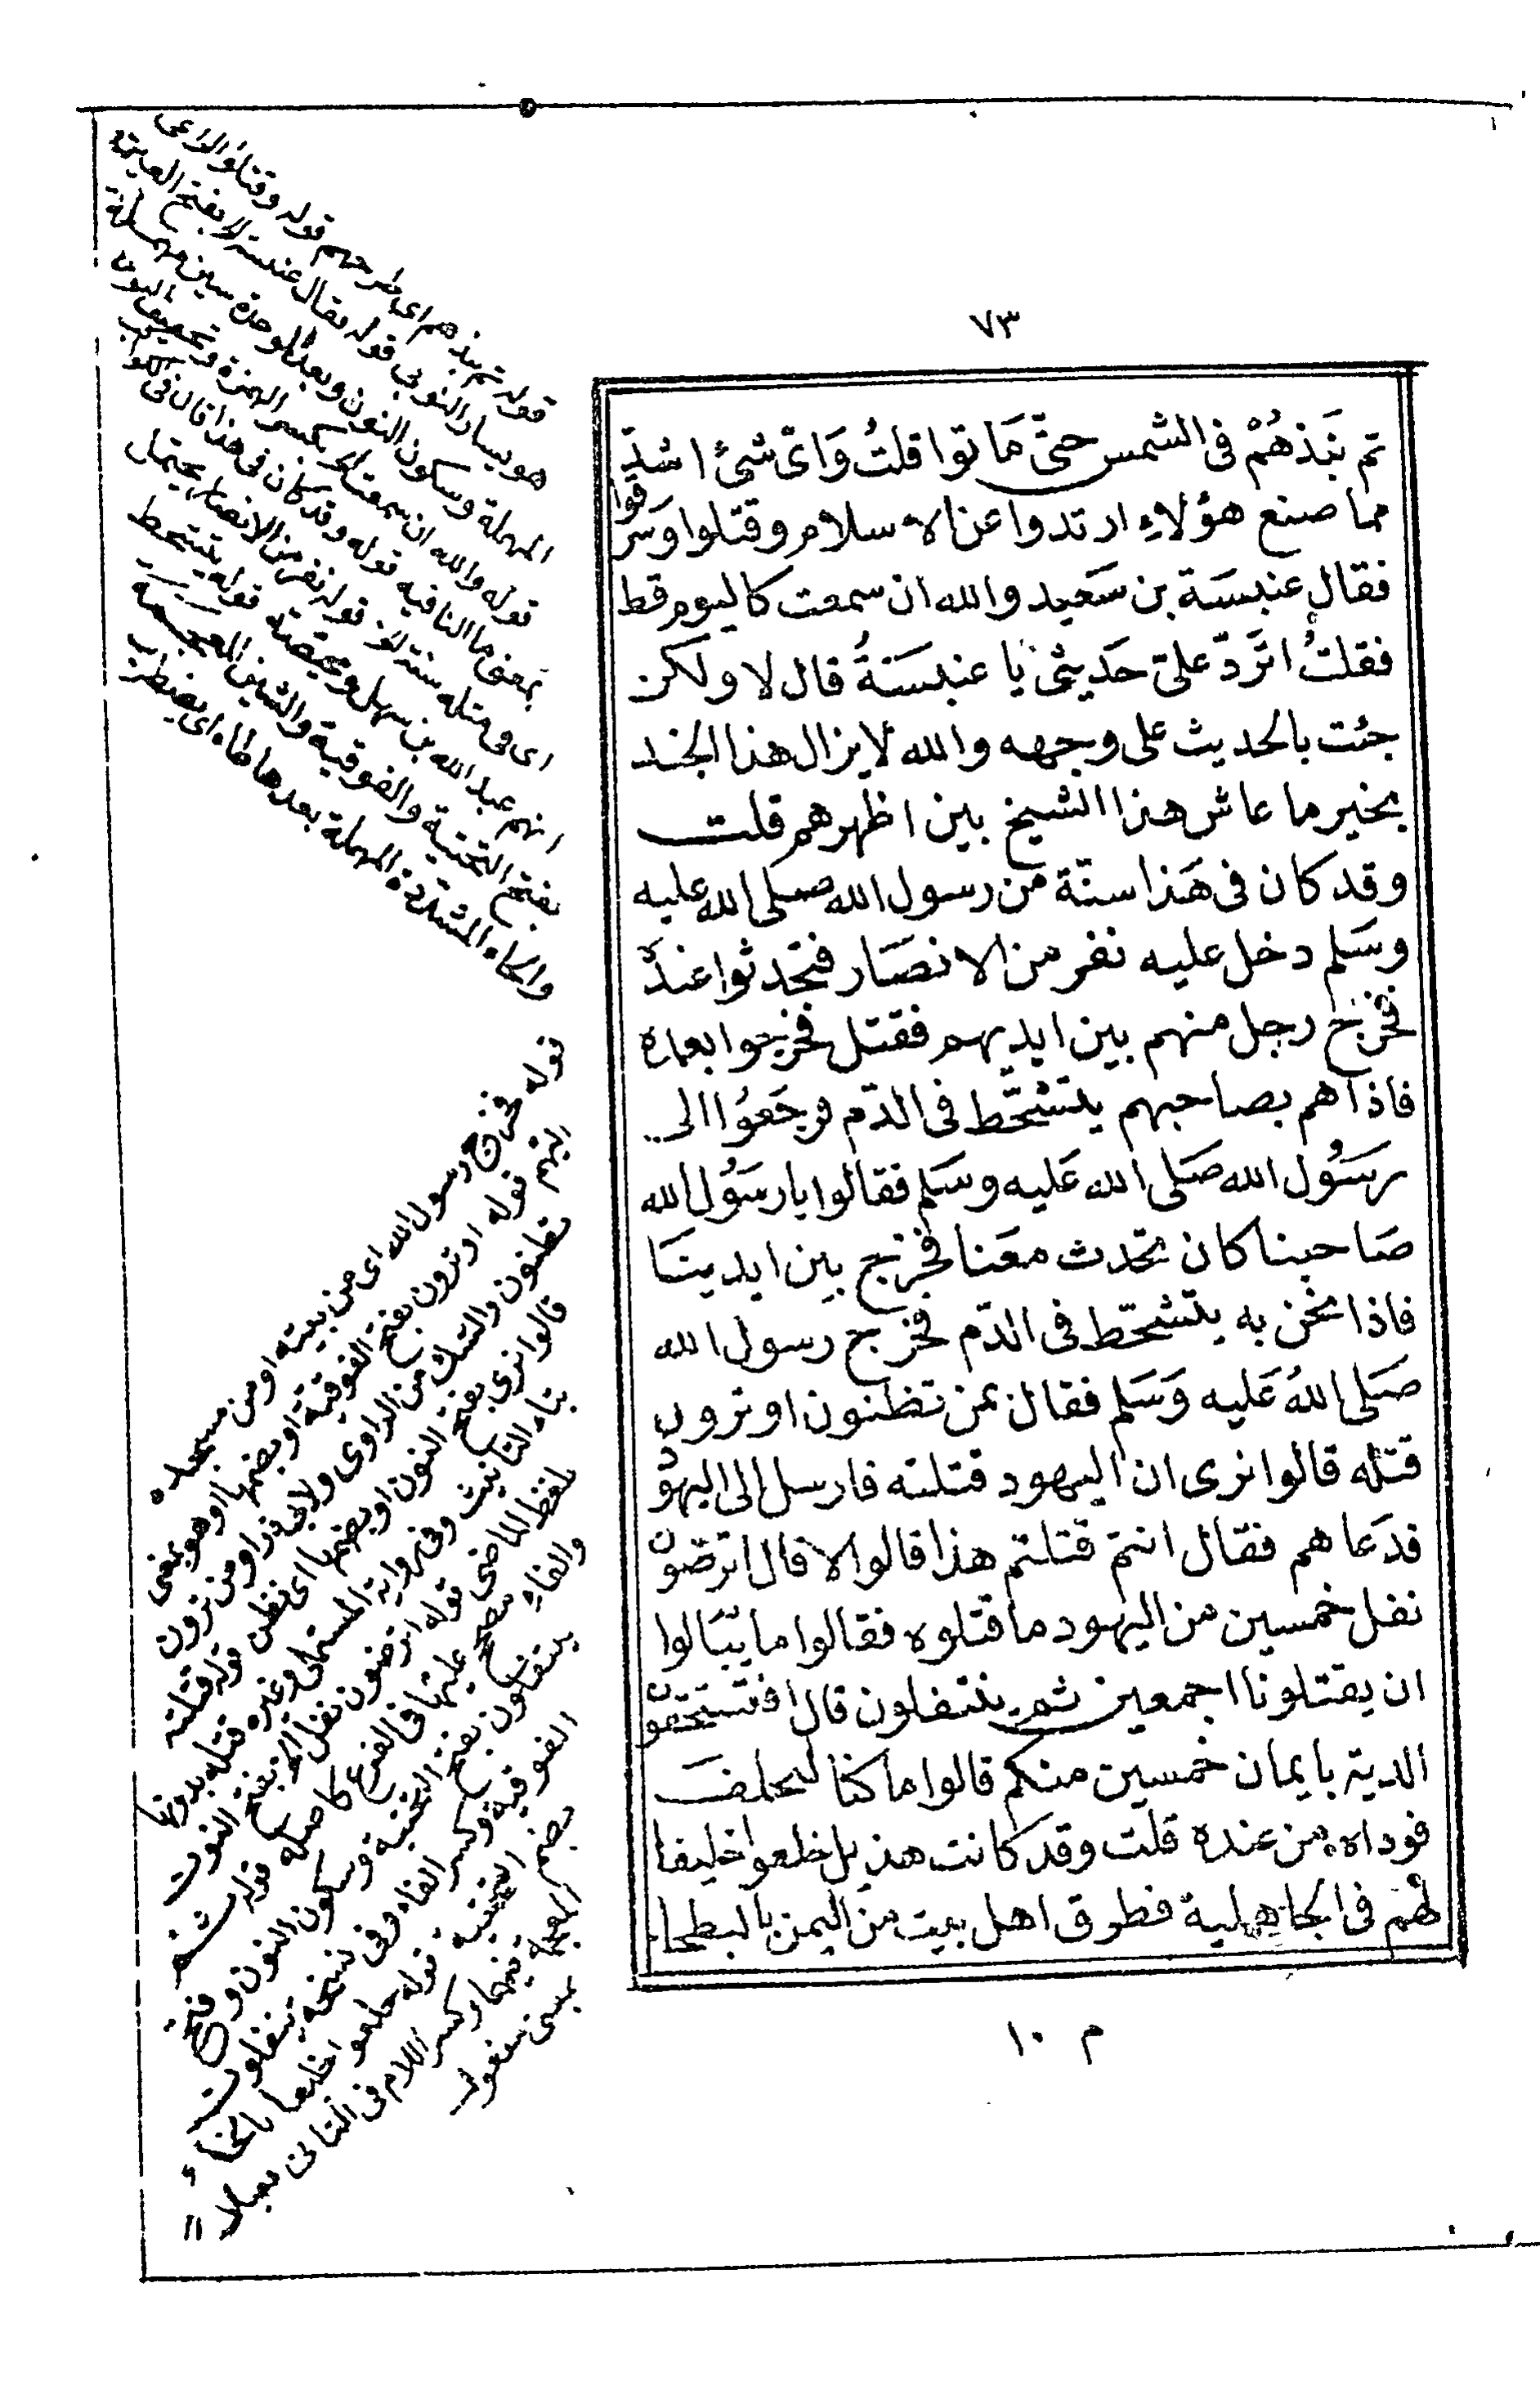 ٧٣
ثم نَبَذهُمْ فى الشمس حتىّ مَا توا قلتُ وَاىّ شئ اشدّ
مما صنع هؤلاءِ ارتدوا عن الاسلام وقتلوا وَسَرقوا
فقال عنبسَة بن سَعيد والله ان سمعت كاليوم قط
فقلتُ اتَردّ علىّ حَديثى يا عنبسَةُ قال لا ولكن
جئت بالحديث على وجهه والله لايزال هذا الجند
بخير ما عاش هذا الشيخ بين اظهرهم قلت
وقد كان فى هَذا سنّة من رسول الله صلى الله عليه
وسَلم دخل عليه نفر من الانصَار فتحدثوا عندَه
فخرَج رجل منهم بين ايديهم فقتل فخرجوا بعده
فاذا هم بصاحبهم يتشحّط فى الدّم فرجَعوُا الى
رسَوُل الله صَلى الله عَليه وسَلم فقالوا يا رسَوُل الله
صَاحبنا كان تحدث معَنا فخرَج بين ايدينَا
فاذا نحن به يتشحّط فى الدّم فخرج رسول الله
صَلى اللهُ عَليه وَسَلم فقال بمن تظنون او ترون
قتلَه قالوا نرى ان اليهود قتلته فارسل الى اليهود
فدَعاهم فقال انتم قتلتم هذا قالوا لا قال اترضون
نفل خمسين من اليهود ما قتلوه فقالوا ما يبَالوا
ان يقتلونا اجمعين ثم ينتفلون قال افتستحقون
الدية بايمان خمسين منكم قالوا ما كنا لنحلف
فوداه من عنده قلت وقد كانت هذيل خلعوا خليفا
لهم فى الجاهلية فطرق اهل بيت من اليمن بالبطحاء
م ١٠
قوله ثم نبذهم اى طرحهم قوله وقتلوا الراعى
هو يسار النوبى قوله فقال عنبسة بفتح العين
المهملة وسكون النون وبعد الموحدة سين مهملة
قوله والله ان سمعت كاليوم بكسر الهمزة وتخفيف النون
بمعنى ما النافية قوله وقد كان فى هذا قال فى الكواكب
اى فى مثله سنة قوله نفر من الانصار يحتمل
انهم عبد الله بن سهل ومحيصة قوله يتشحط
بفتح التحتية والفوقية والشين المعجمة
والحاء المشددة المهملة بعدها طاء اى يضطرب
قوله فخرج رسول الله اى من بيته او من مسجده
اليهم قوله او ترون بفتح الفوقية او بضمها وهو بمعنى
تظنون والشك من الراوى ولابى ذر او من ترون
قالوا نرى بفتح النون او بضمها اى نظن قوله قتلته
بتاء التانيث وفى رواية المستملى وغيره قتله بدونها
بلفظ الماضى قوله اترضون نفل بفتح النون
والفاء مصحح عليها فى الفرع كاصله قوله ثم
ينتفلون بفتح التحتية وسكون النون وفتح
الفوقية وكسر الفاء وفى نسخة ينفلون
بضم التحتية قوله خلعوا خليعا بالخاء
المعجمة فيهما وكسر اللام فى الثانى فعيلا
بمعنى مفعول